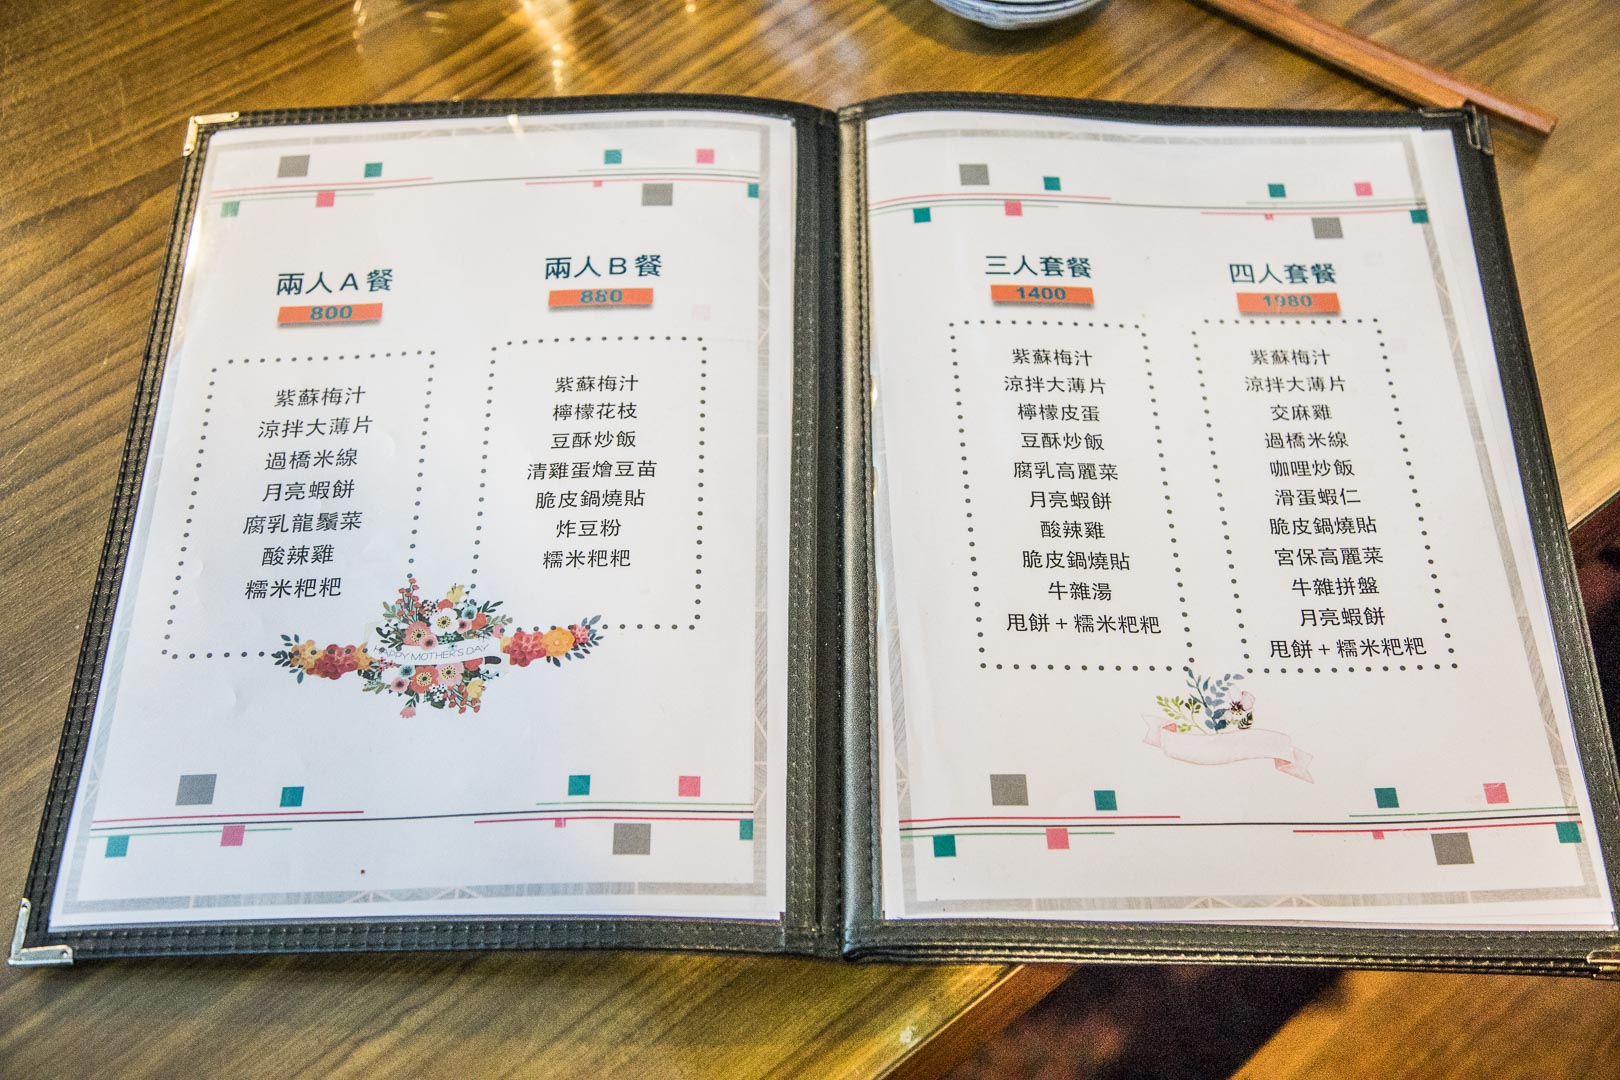 兩人A餐
800
紫蘇梅汁
涼拌大薄片
過橋米線
月亮蝦餅
腐乳龍鬚菜
酸辣雞
糯米粑粑
兩人B餐
880
紫蘇梅汁
檸檬花枝
豆酥炒飯
清雞蛋燴豆苗
脆皮鍋燒貼
炸豆粉
糯米粑粑
HAPPY MOTHER'S DAY
三人套餐
1400
紫蘇梅汁
涼拌大薄片
檸檬皮蛋
豆酥炒飯
腐乳高麗菜
月亮蝦餅
酸辣雞
脆皮鍋燒貼
牛雜湯
甩餅+糯米粑粑
四人套餐
1980
紫蘇梅汁
涼拌大薄片
交麻雞
過橋米線
咖哩炒飯
滑蛋蝦仁
脆皮鍋燒貼
宮保高麗菜
牛雜拼盤
月亮蝦餅
甩餅+糯米粑粑